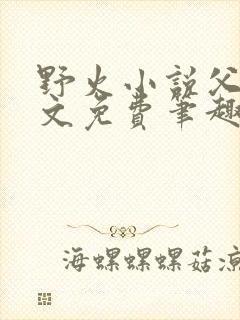 野火小说父
文免费笔趣
海螺螺螺菇凉